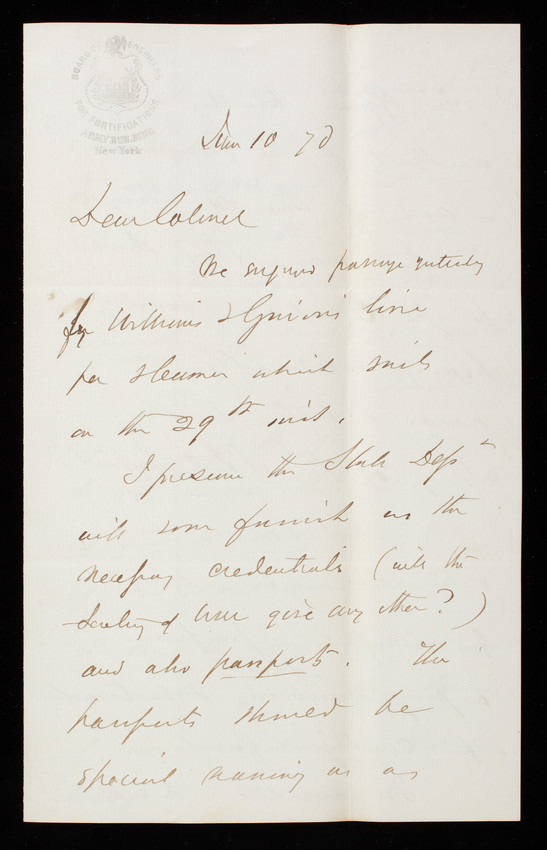 BOARD OF ENGINEERS
FOR FORTIFICATIONS
ARMY BUILDING
New York
10 70
Dear Colonel
We engaged passage yesterday
by Williams & Guion's line
per steamer which sails
on the 29th inst.
I presume the State Dept
will soon furnish us the
necessary credentials (will the
Secretary of War give any other?)
and also passports. The
passports should be
special naming us as